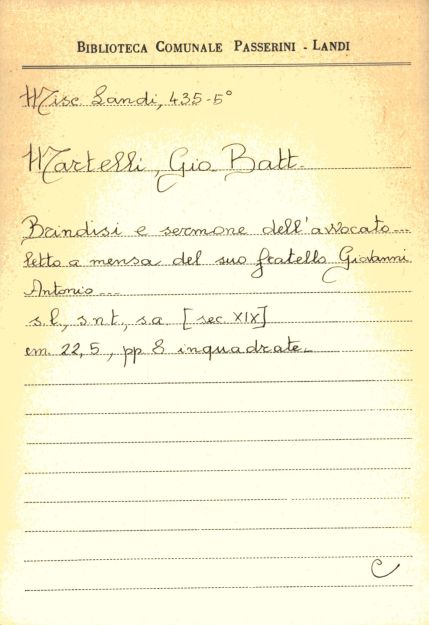 BIBLIOTECA COMUNALE PASSERINI - LANDI
Misc Landi, 435-5°
Martelli, Gio Batt.
Brindisi e sermone dell'avvocato...
letto a mensa del suo fratello Giovanni
Antonio...
s.l., s.n.t., s.a [sec XIX]
cm. 22,5, pp 8 inquadrate.
C